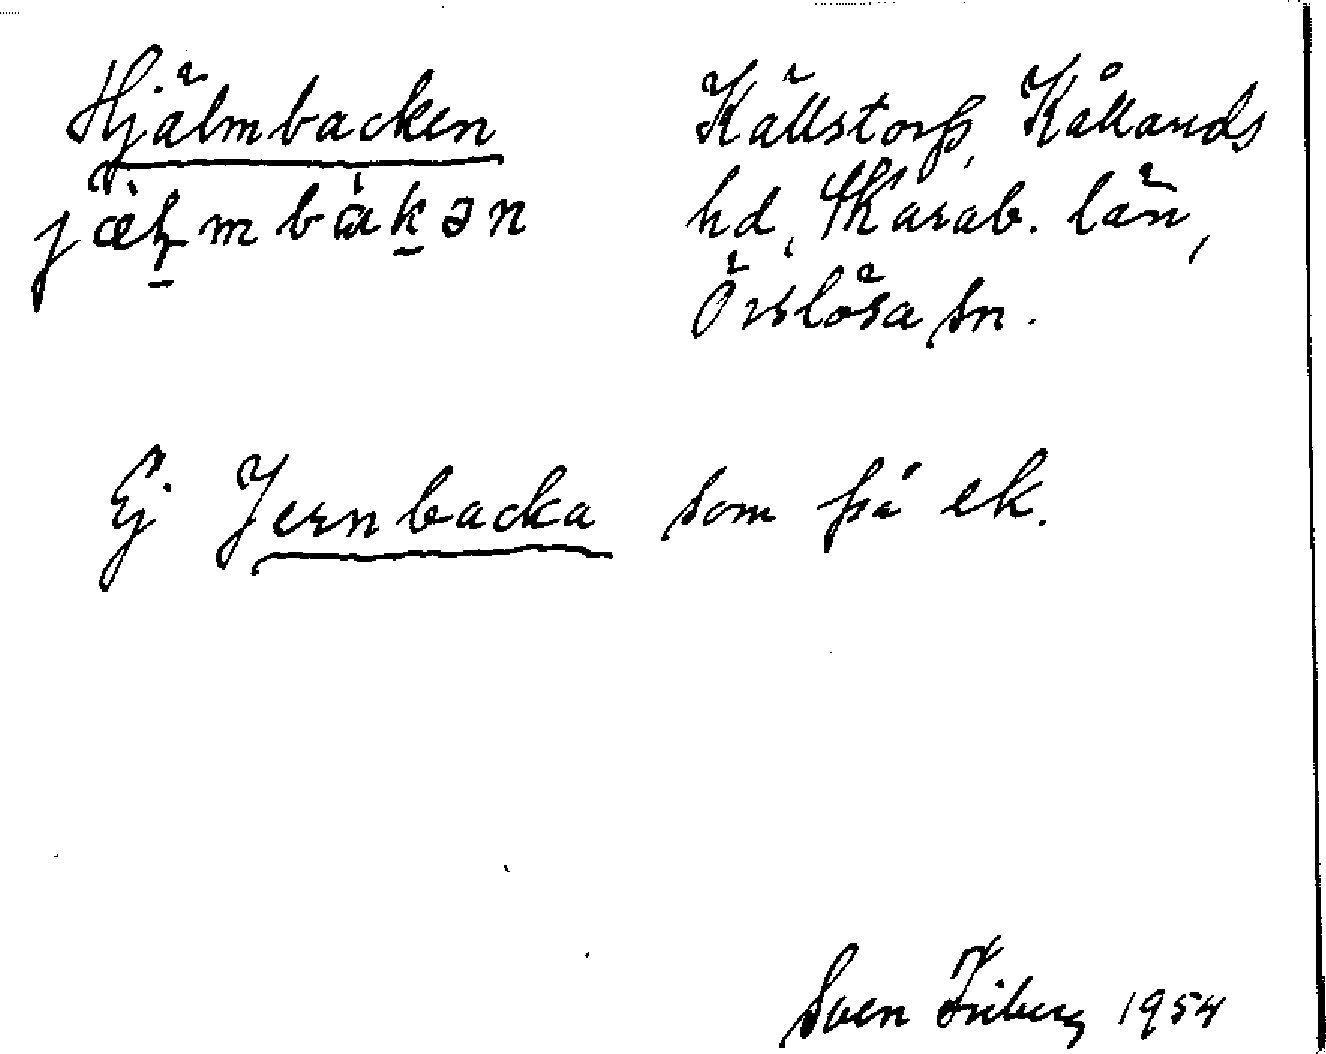 Hjälmbacken
Källstorp, Kållands
hd, Skarab. län,
Örslösa sn.
Ej Jernbacka som på ek.
Sven Friberg 1954